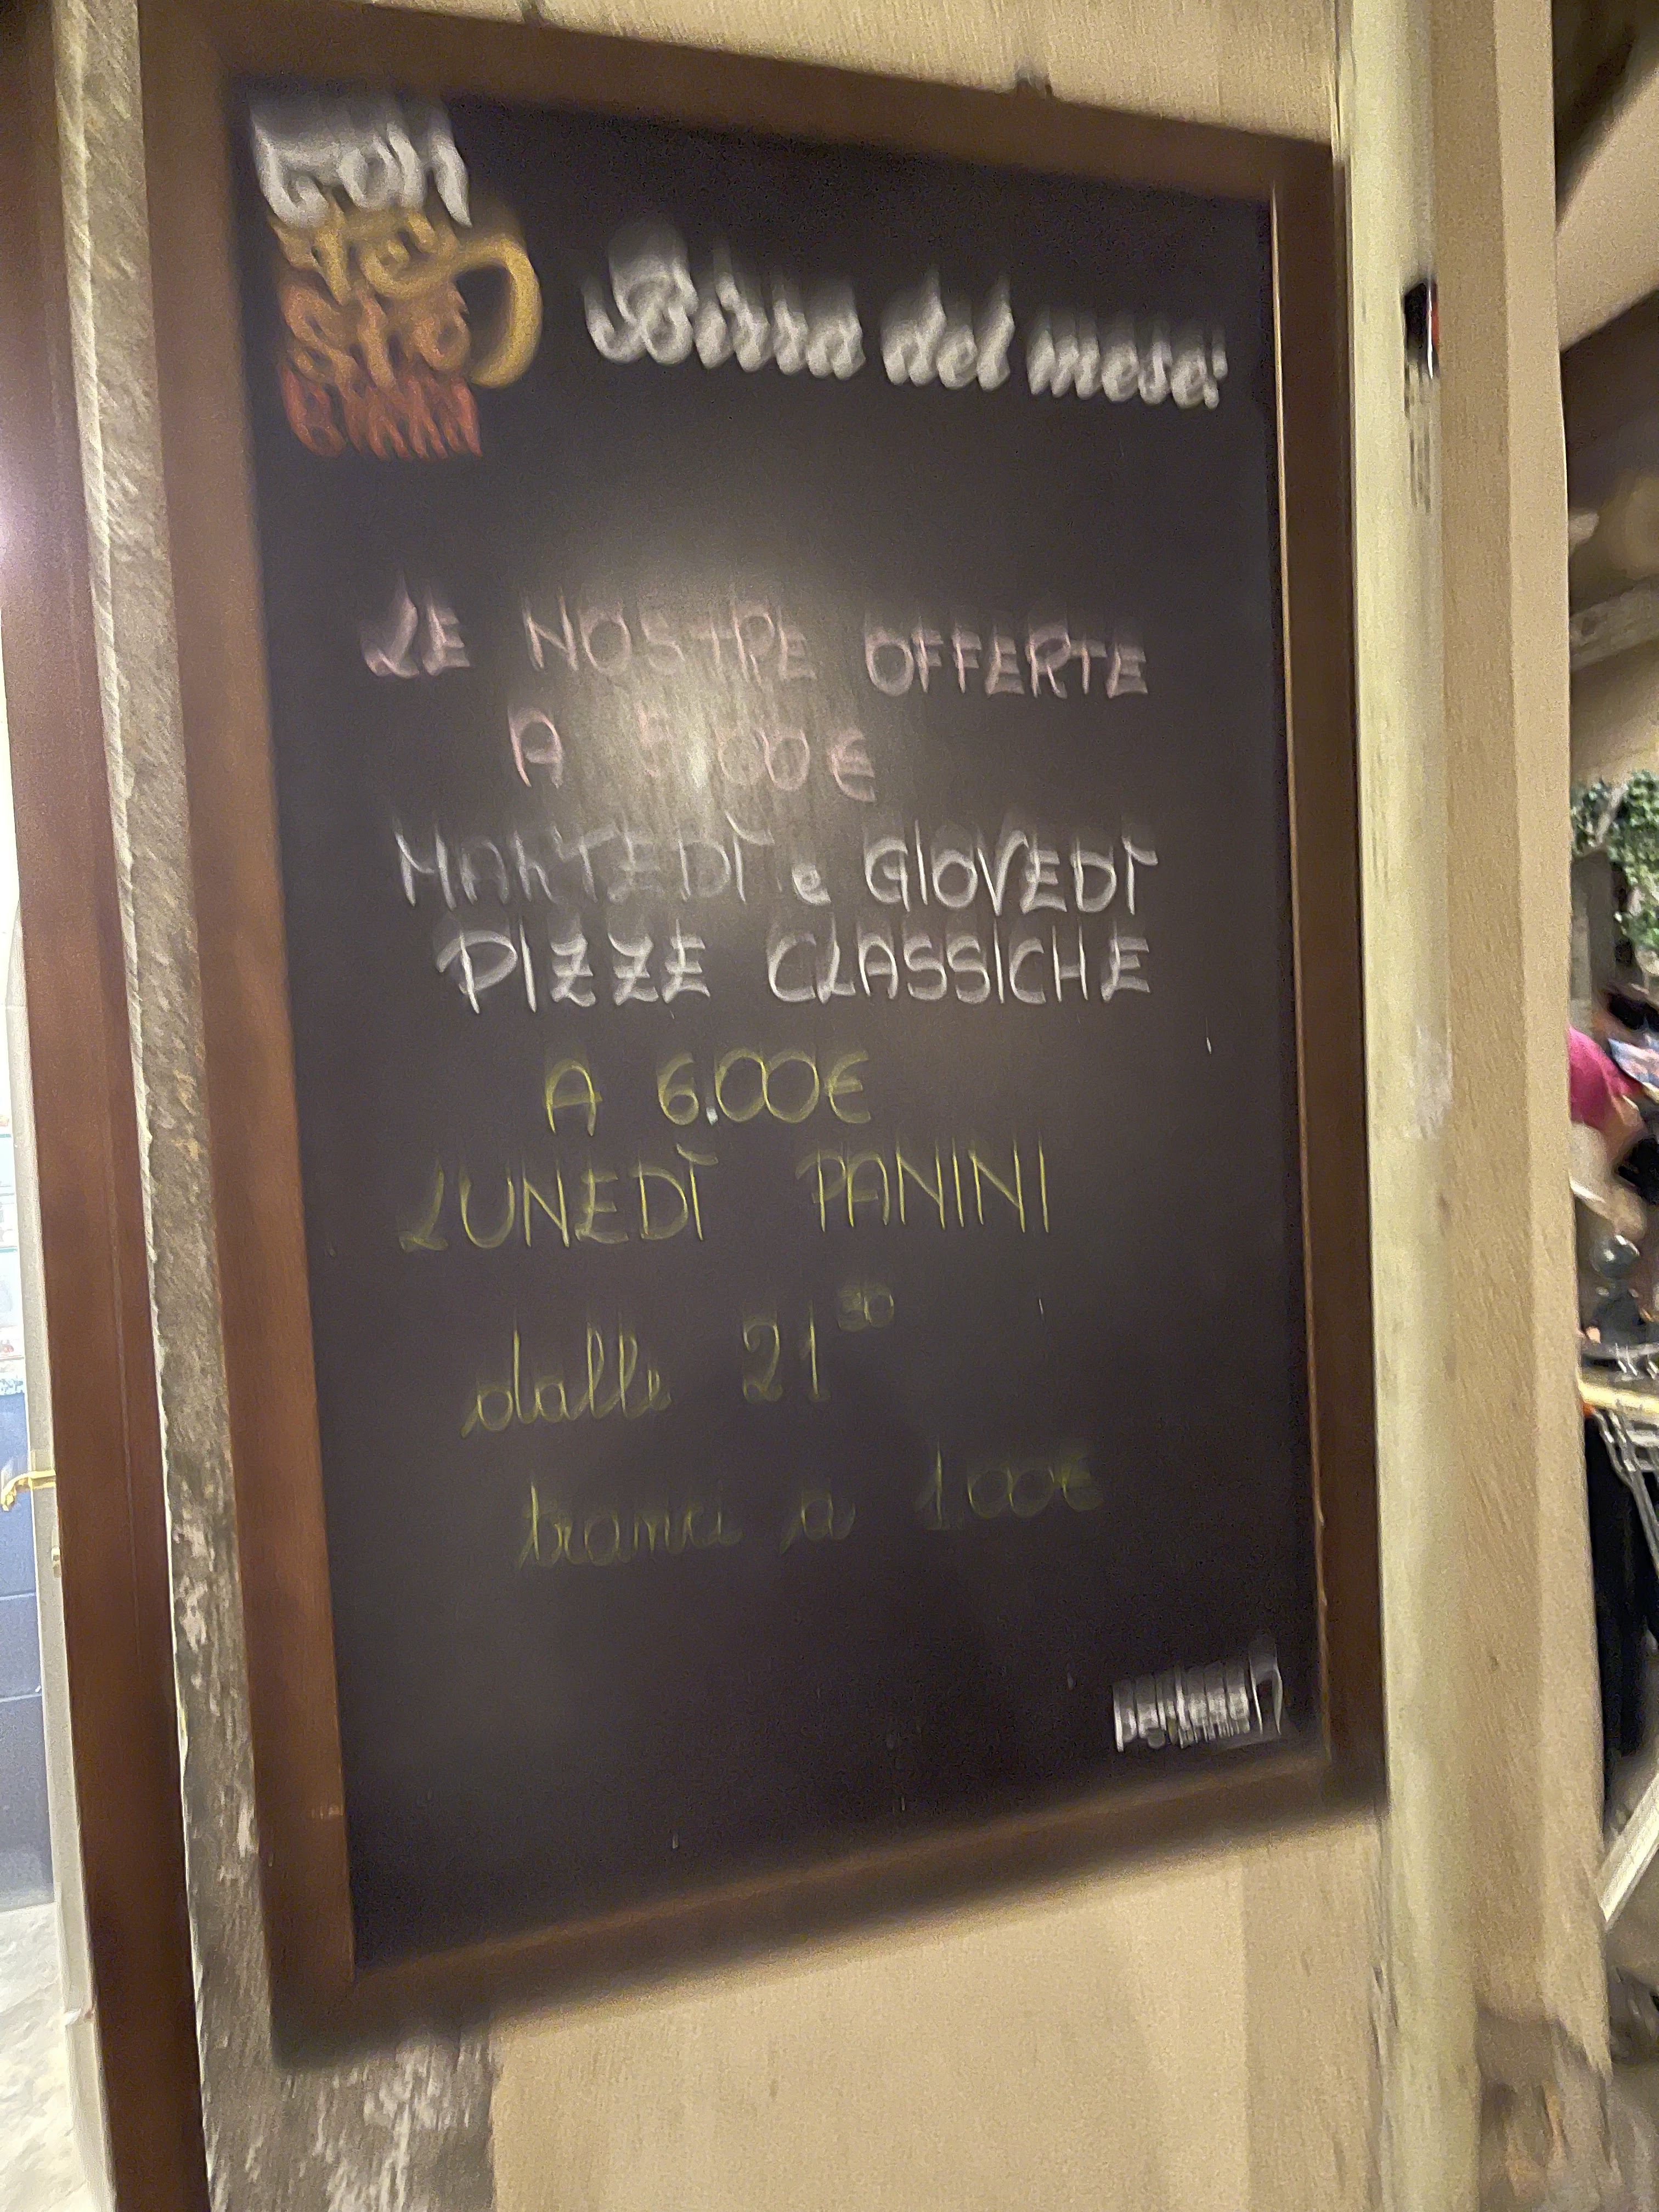 Birra del mese!
LE NOSTRE OFFERTE
A 5.00€
MARTEDÌ e GIOVEDÌ
PIZZE CLASSICHE
A 6.00€
LUNEDÌ PANINI
dalle 21 30
tranci a 1.00€
partesa